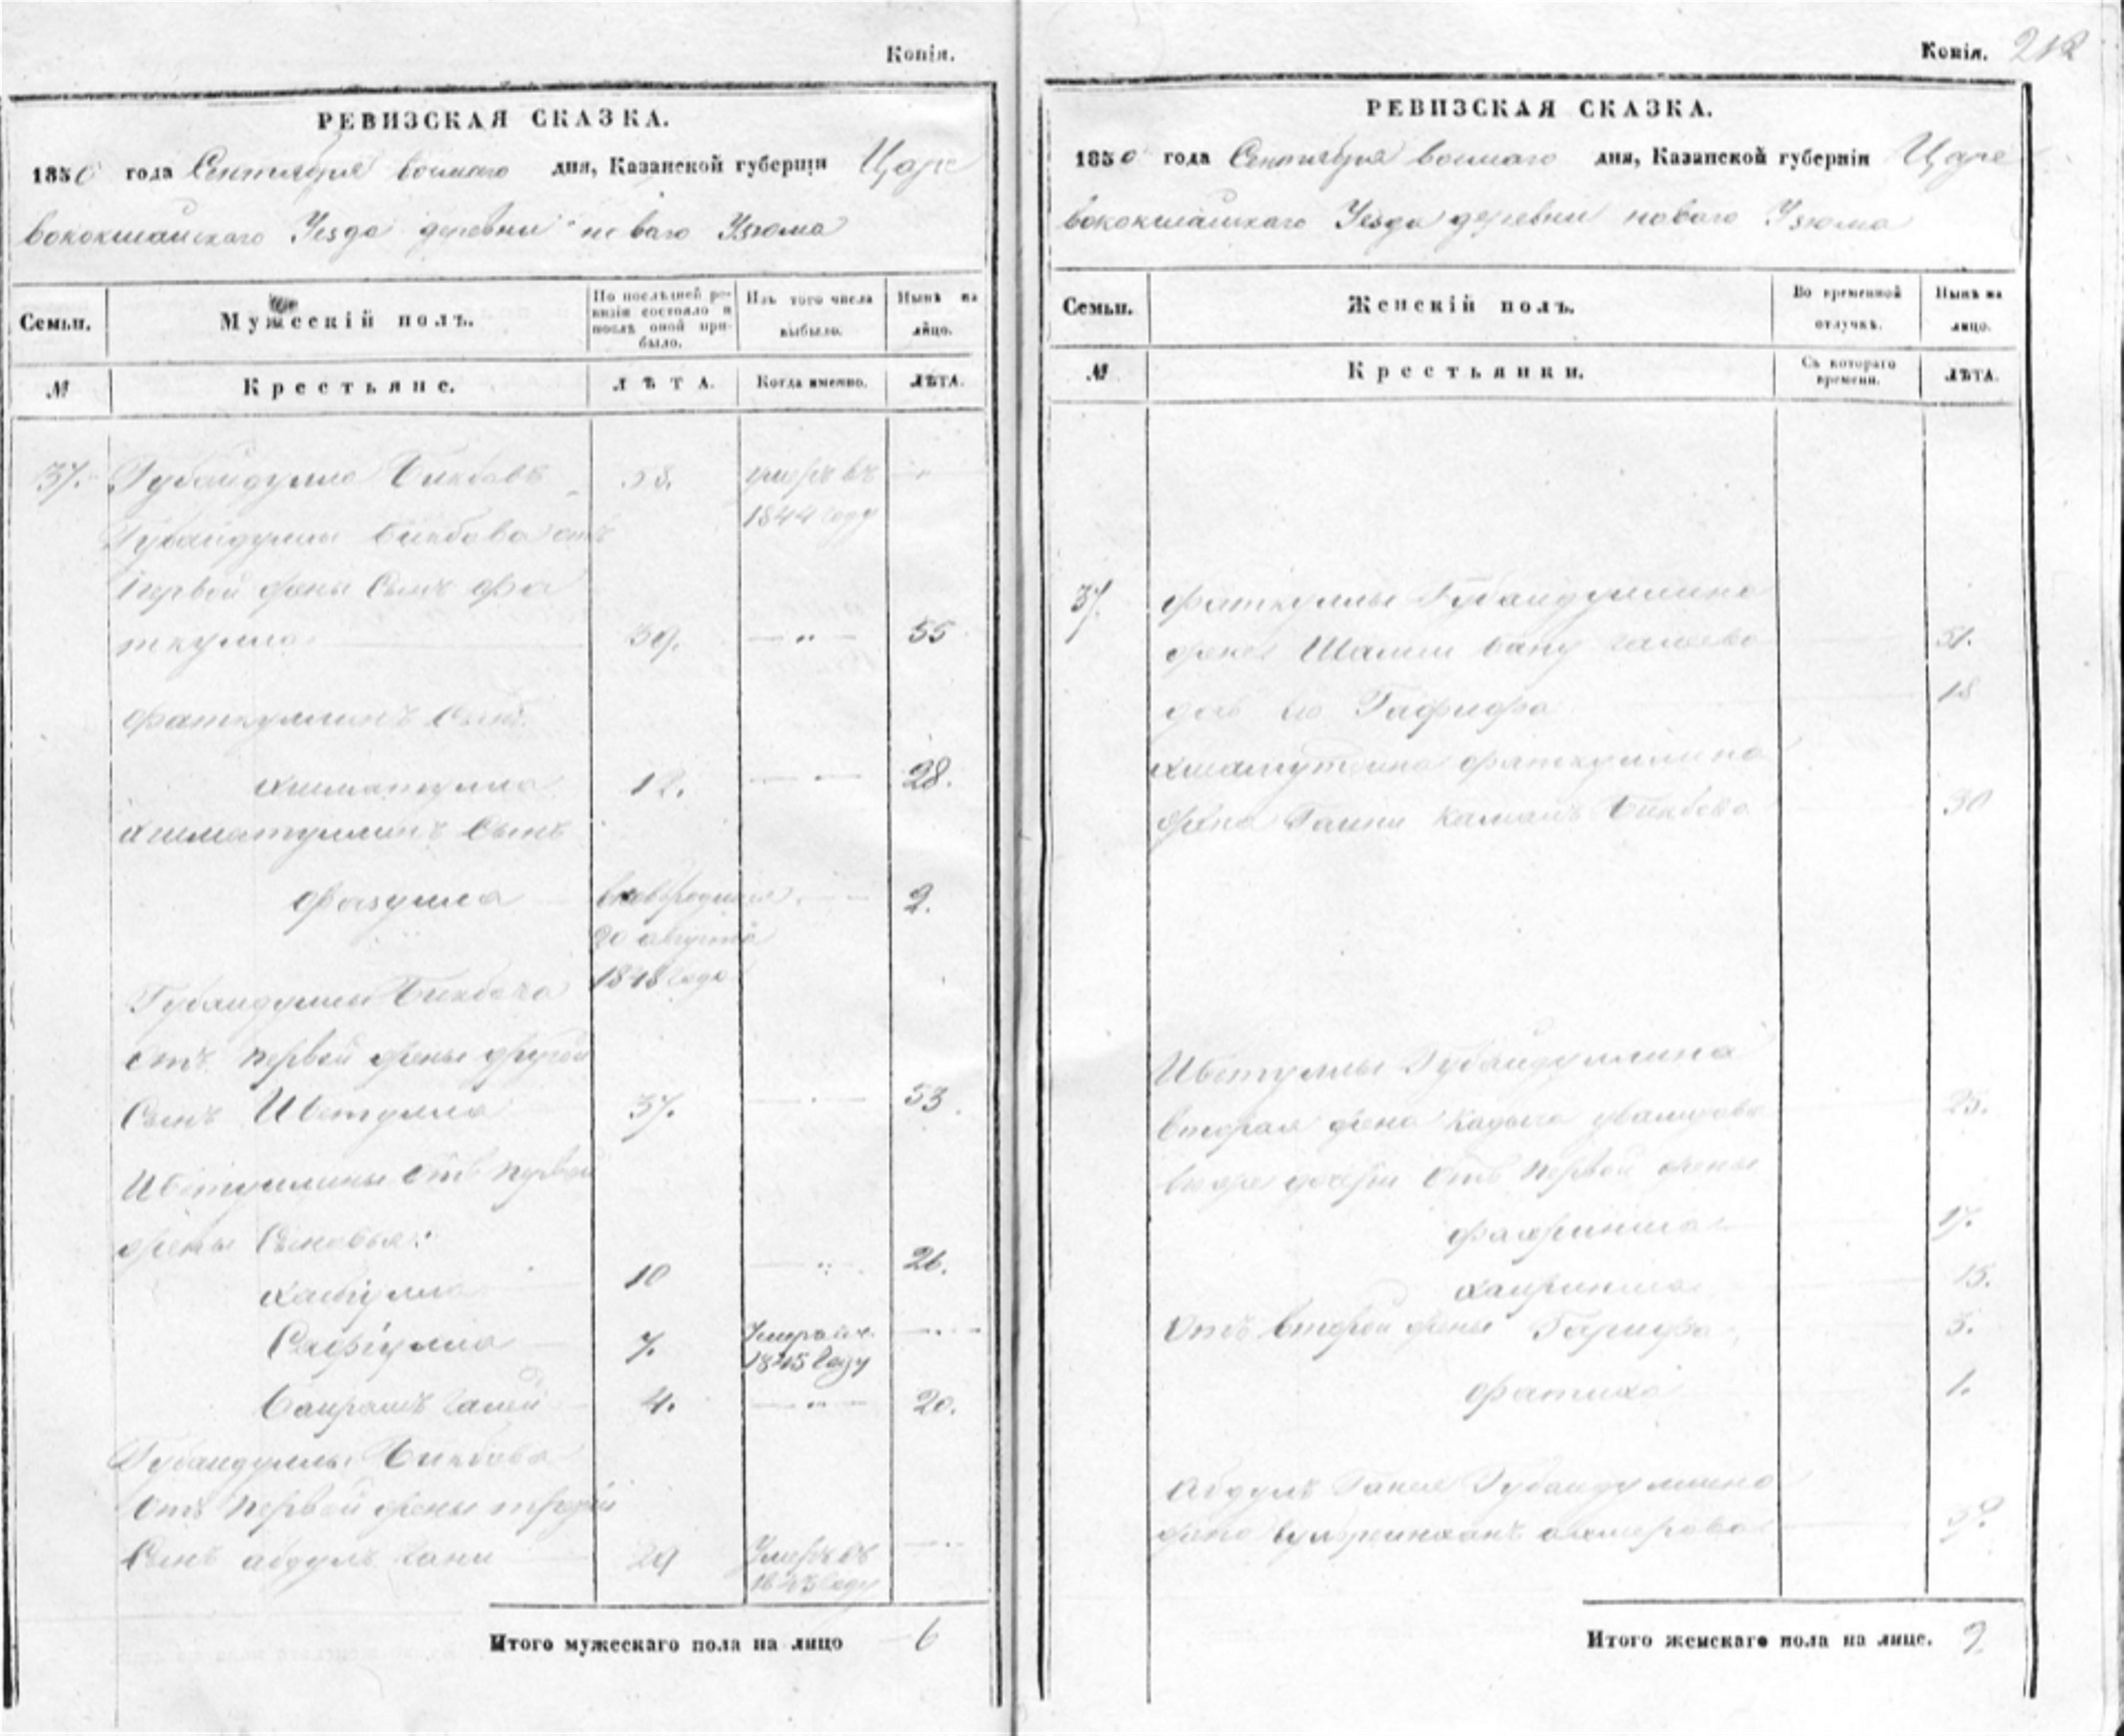 Копія.
РЕВИЗСКАЯ СКАЗКА.
1850 года Сентября восмаго дня, Казанской губерніи Царе
вококшайскаго Уезда деревни новаго Узюма
Семьи.
Мужескій полъ.
По послѣдней ре-
визіи состояло и
послѣ оной при-
было.
Изъ того числа
выбыло.
Нынѣ на
лицо.
№
Крестьяне.
ЛѢТА.
Когда именно.
ЛѢТА.
37. Губайдулла Бикбовъ 58. умеръ въ
1844 году
Губайдуллы Бикбова отъ
первой жены Сынъ Фа
ткулла 39. 55
Фаткуллинъ Сынъ
Хисматулла 12. 28.
Хисматуллинъ Сынъ
Фазулла 2.
20 августа
1848 года
Губайдуллы Бикбова
отъ первой жены другой
Сынъ Ибетулла 37. 53
Ибетуллины отъ первой
жены Сыновья:
Хабулла 10 26.
Сафіулла 7. Умеръ въ
1845 году
Баирамъ Галей 4. 20.
Губайдуллы Бикбова
Отъ первой жены третій
Сынъ абдулъ Гани 29 Умеръ въ
году
Итого мужескаго пола на лицо 6
Копія. 212
РЕВИЗСКАЯ СКАЗКА.
1850 года Сентября восмаго дня, Казанской губерніи Царе
вококшайскаго Уезда деревни новаго Узюма
Семьи.
Женскій полъ.
Во временной
отлучкѣ.
Нынѣ на
лицо.
№
Крестьянки.
Съ котораго
времени.
ЛѢТА.
37. Фаткуллы Губайдуллина
жена Шамси бану 51.
дочь его Гафифа 18
Фаткуллина
жена Бикбова 30
Ибетуллы Губайдуллина
вторая жена 25.
дочери отъ первой жены
17.
15.
Отъ второй жены Гарифа 5.
Фатиха 1.
Абдулъ Ганея Губайдуллина
жена
Итого женскаго пола на лице. 9